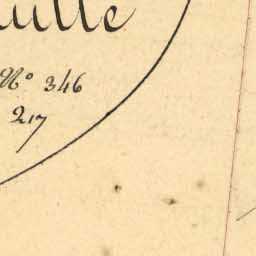 uille
N° 346
217